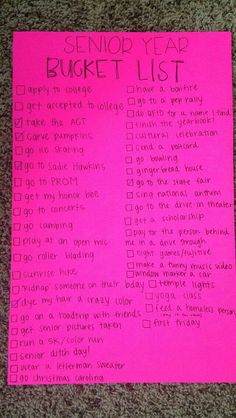 SENIOR YEAR
BUCKET LIST
apply to college
get accepted to college
take the ACT
carve pumpkins
go ice skating
go to Sadie Hawkins
go to PROM
get my honor bee
go to concerts
go camping
play at an open mic
go roller blading
sunrise hike
"kidnap" someone on their bday
dye my hair a crazy color
go on a roadtrip with friends
get senior pictures taken
run a 5K/color run
senior ditch day!
wear a letterman sweater
go christmas caroling
have a bonfire
go to a pep rally
finish the yearbook!
cultural celebration
send a postcard
go bowling
gingerbread house
go to the state fair
sing national anthem
go to the drive in theater
get a scholarship
pay for the person behind
me in a drive through
night games/fugitive
make a funny music video
window marker a car
temple lights
yoga class
feed a homeless person
first friday